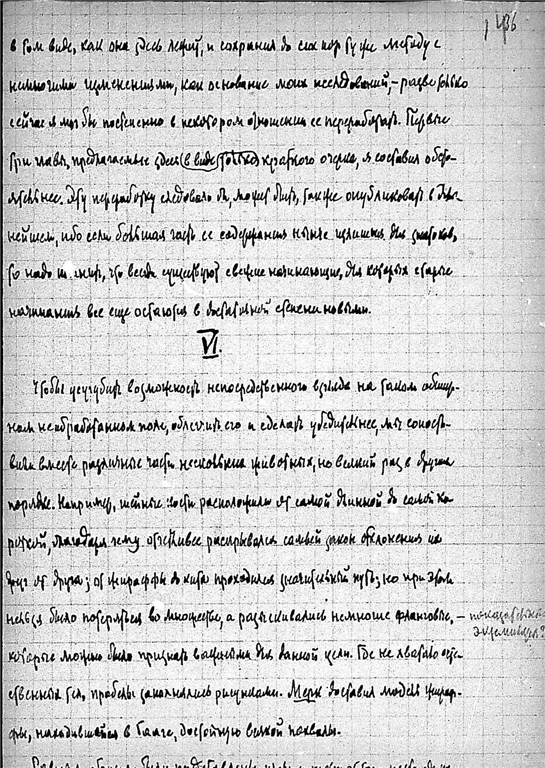 136
в том виде, как она здесь лежит, и сохранив до сих пор ту же методу с
немногими изменениями, как основание моих исследований, – разве только
сейчас я мог бы постепенно в некотором отношении ее переработать. Первые
три главы, предлагаемые здесь (в виде только) краткого очерка, я составил обсто-
ятельнее. Эту переработку следовало бы, может быть, также опубликовать в
нейшем, ибо если большая часть ее содержания ныне излишня для знатоков,
то надо что всегда существуют свежие начинающие, для которых старые
начинания все еще остаются в достаточной степени новыми.
VI.
Чтобы усугубить возможность непосредственного взгляда на таком обшир-
ном необработанном поле, облегчить его и сделать убедительнее, мы сопоста-
вили вместе различные части нескольких животных, но всякий раз в другом
порядке. Например, шейные кости расположили от самой длинной до самой ко-
роткой, благодаря чему отчетливее раскрывался самый закон отклонения их
друг от друга; от жираффы до кита проходился значительный путь; но при этом
нельзя было потеряться во множестве, а разыскивались немногие фланговые, –
показательные
экземпляры?
которые можно было признать важными для данной цели. Где не хватало есте-
ственных тел, пробелы заполнялись рисунками. Мерк доставил модель жираф-
фы, находившейся в Гааге, достойную всякой похвалы.